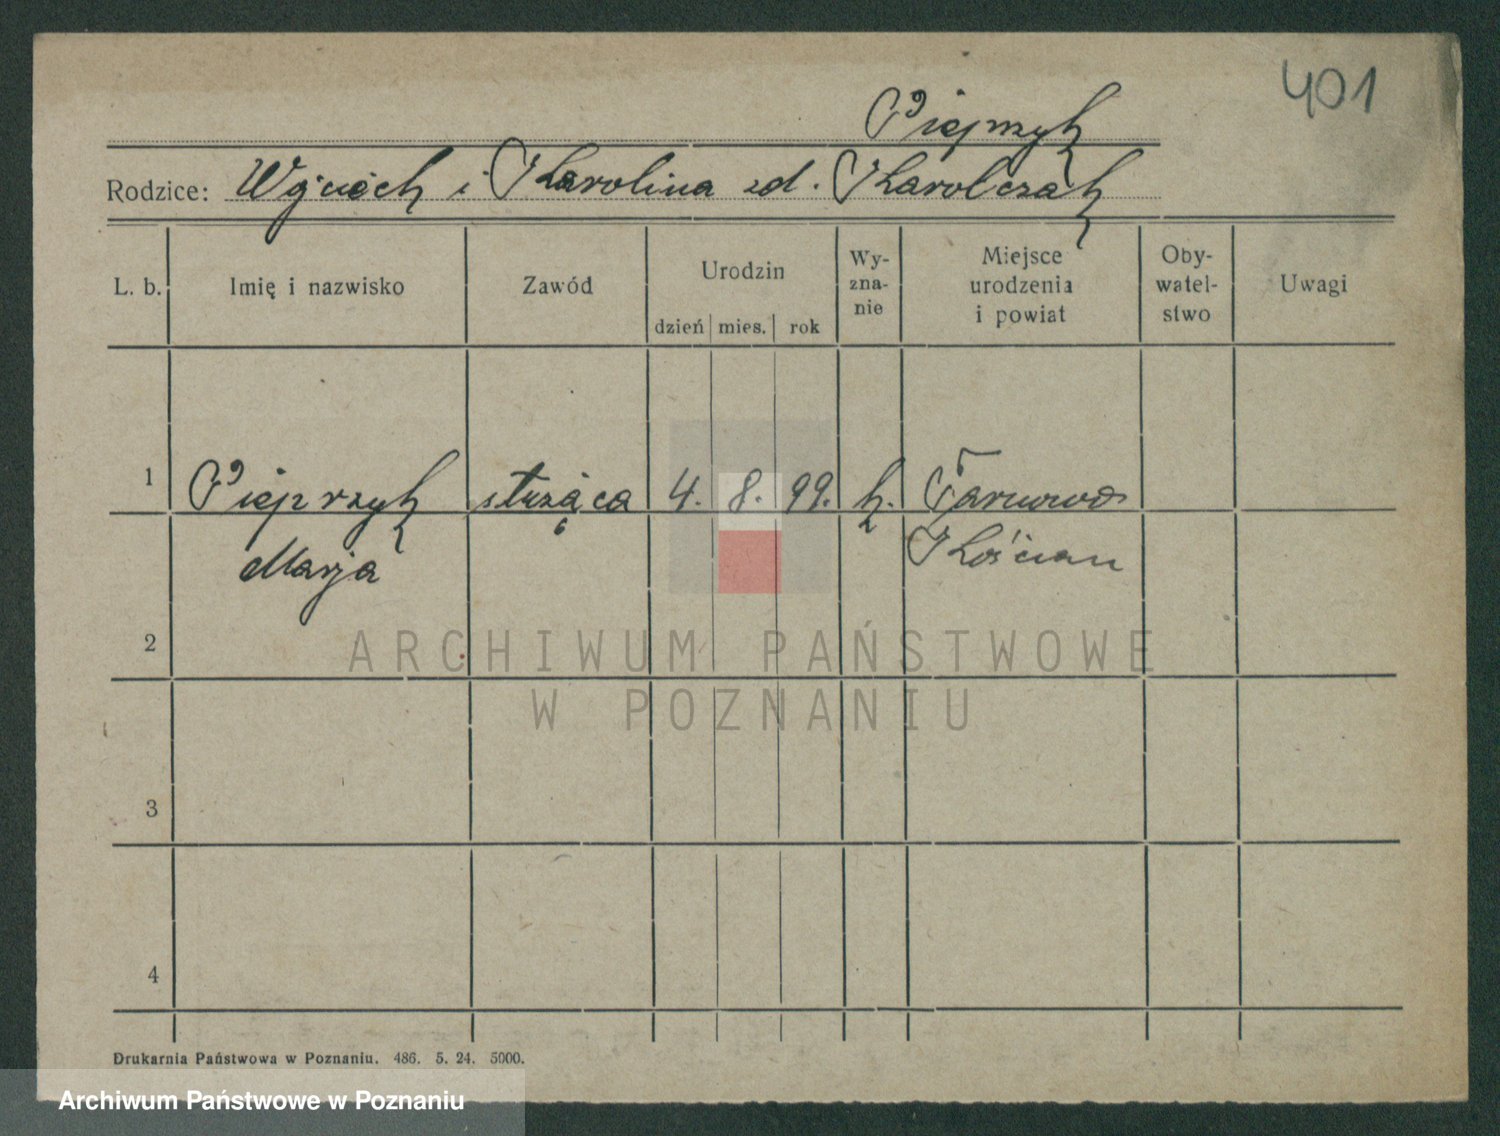 401
Pieprzyk
Rodzice: Wojciech i Karolina zd. Karolczak
L. b. Imię i nazwisko Zawód Urodzin dzień mies. rok Wy-zna-nie Miejsce urodzenia i powiat Oby-watel-stwo Uwagi
1 Pieprzyk służąca 4. 8. 99. k. Tarnowo
Marja Kościan
2
ARCHIWUM PAŃSTWOWE
W POZNANIU
3
4
Drukarnia Państwowa w Poznaniu. 486. 5. 24. 5000.
Archiwum Państwowe w Poznaniu